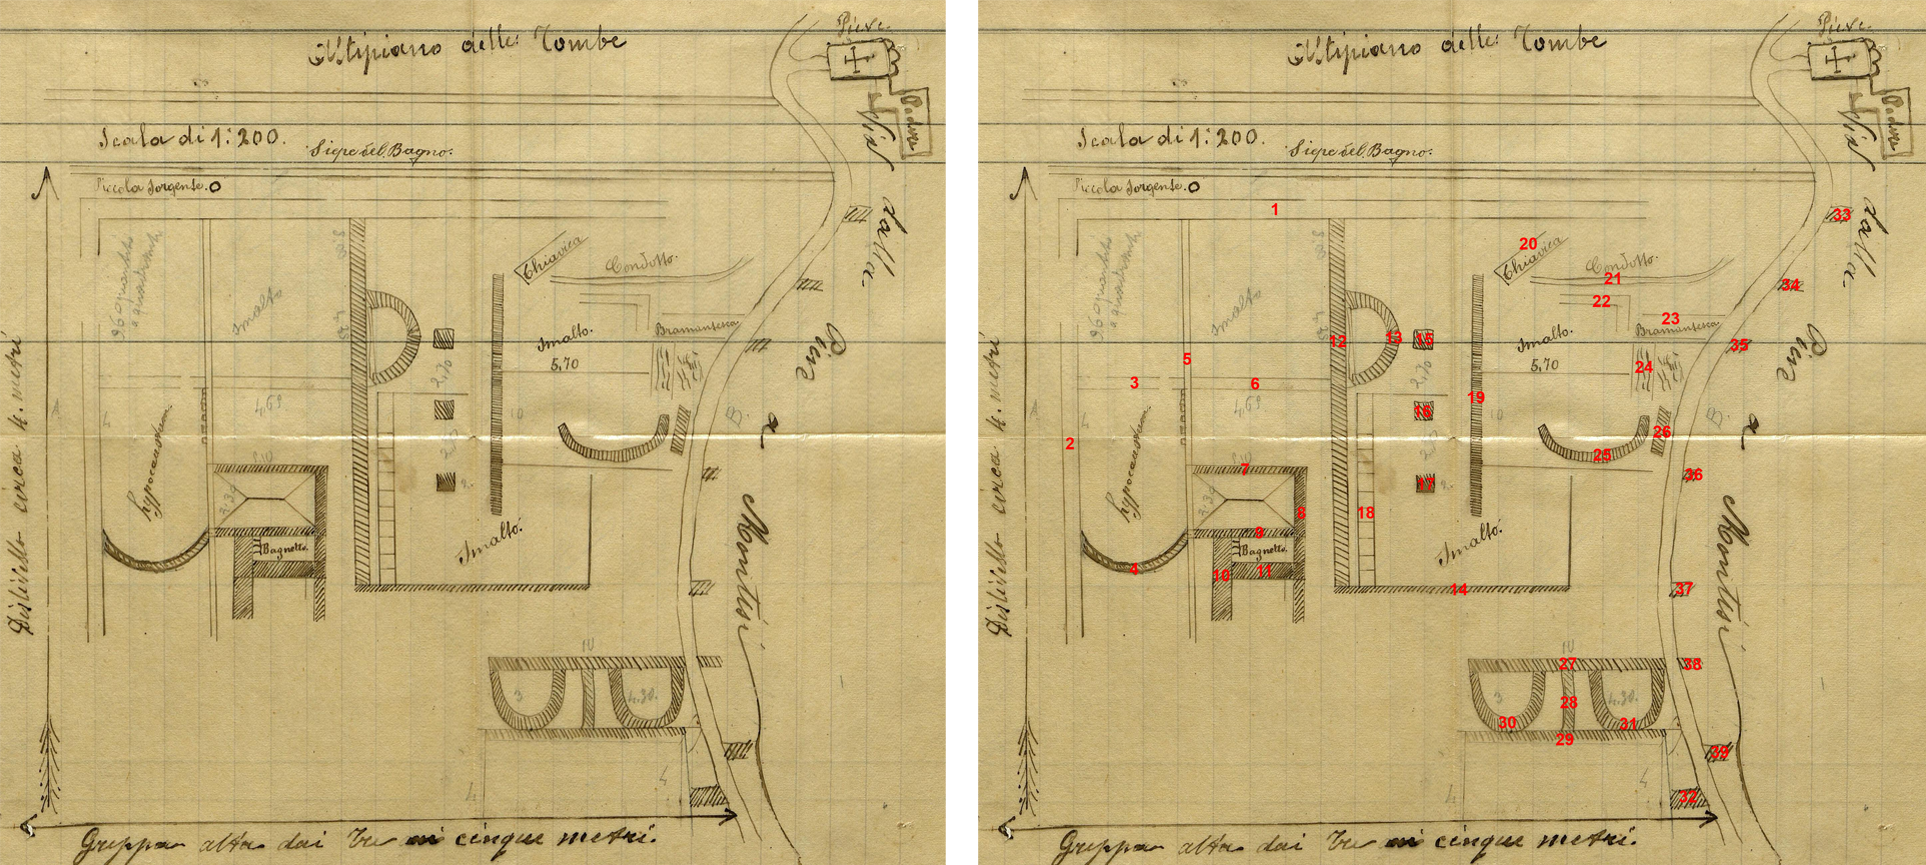 Pieve
Altipiano delle Tombe
Podere
Scala di 1:200.
Siepe del Bagno.
Piccola Sorgente.
Via dalla Pieve a Montisi
96 quadretti
a quadretti
Smalto
Chiavica
Condotto.
Smalto.
5,70
Bramantesca
Dislivello circa 4. metri
A
4
4,69
2,70
10
B
hypocaustum
3,30
Bagnetto.
Smalto.
10
3
4.30.
4
4
Greppa alta dai tre ai cinque metri.
Pieve
Altipiano delle Tombe
Podere
Scala di 1:200.
Siepe del Bagno.
Piccola Sorgente.
Via dalla Pieve a Montisi
1
33
20
Chiavica
Condotto.
21
34
Smalto
22
23
Bramantesca
12
13
15
Smalto.
5,70
35
5
24
3
6
2,70
19
4,69
16
10
B
2
4
26
25
hypocaustum
7
36
17
3,30
8
18
Dislivello circa 4. metri
9
Bagnetto.
Smalto.
4
10
11
14
37
10
27
38
3
28
4.30.
30
31
29
39
4
4
32
Greppa alta dai tre ai cinque metri.